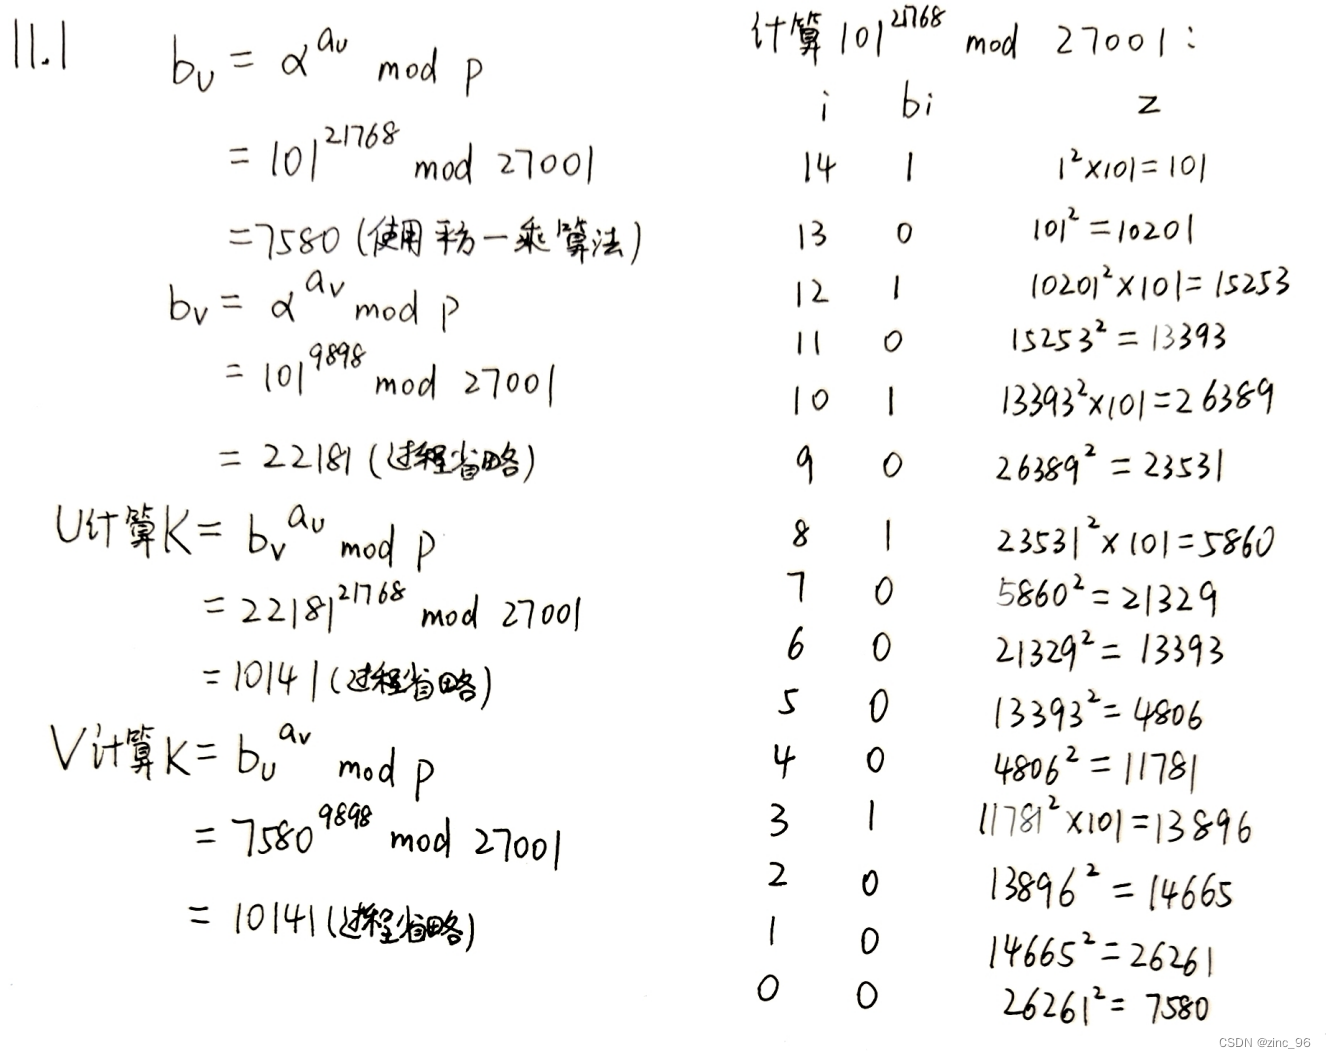 11.1
b_U = α^{a_U} mod p
= 101^{21768} mod 27001
=7580 (使用平方一乘算法)
b_V = α^{a_V} mod p
= 101^{9898} mod 27001
= 22181 (过程省略)
U计算K = b_V^{a_U} mod p
= 22181^{21768} mod 27001
= 10141 (过程省略)
V计算K = b_U^{a_V} mod p
= 7580^{9898} mod 27001
= 10141 (过程省略)
计算 101^{21768} mod 27001 :
i bi z
14 1 1²×101=101
13 0 101²=10201
12 1 10201²×101=15253
11 0 15253²=13393
10 1 13393²×101=26389
9 0 26389²=23531
8 1 23531²×101=5860
7 0 5860²=21329
6 0 21329²=13393
5 0 13393²=4806
4 0 4806²=11781
3 1 11781²×101=13896
2 0 13896²=14665
1 0 14665²=26261
0 0 26261²=7580
CSDN @zinc_96